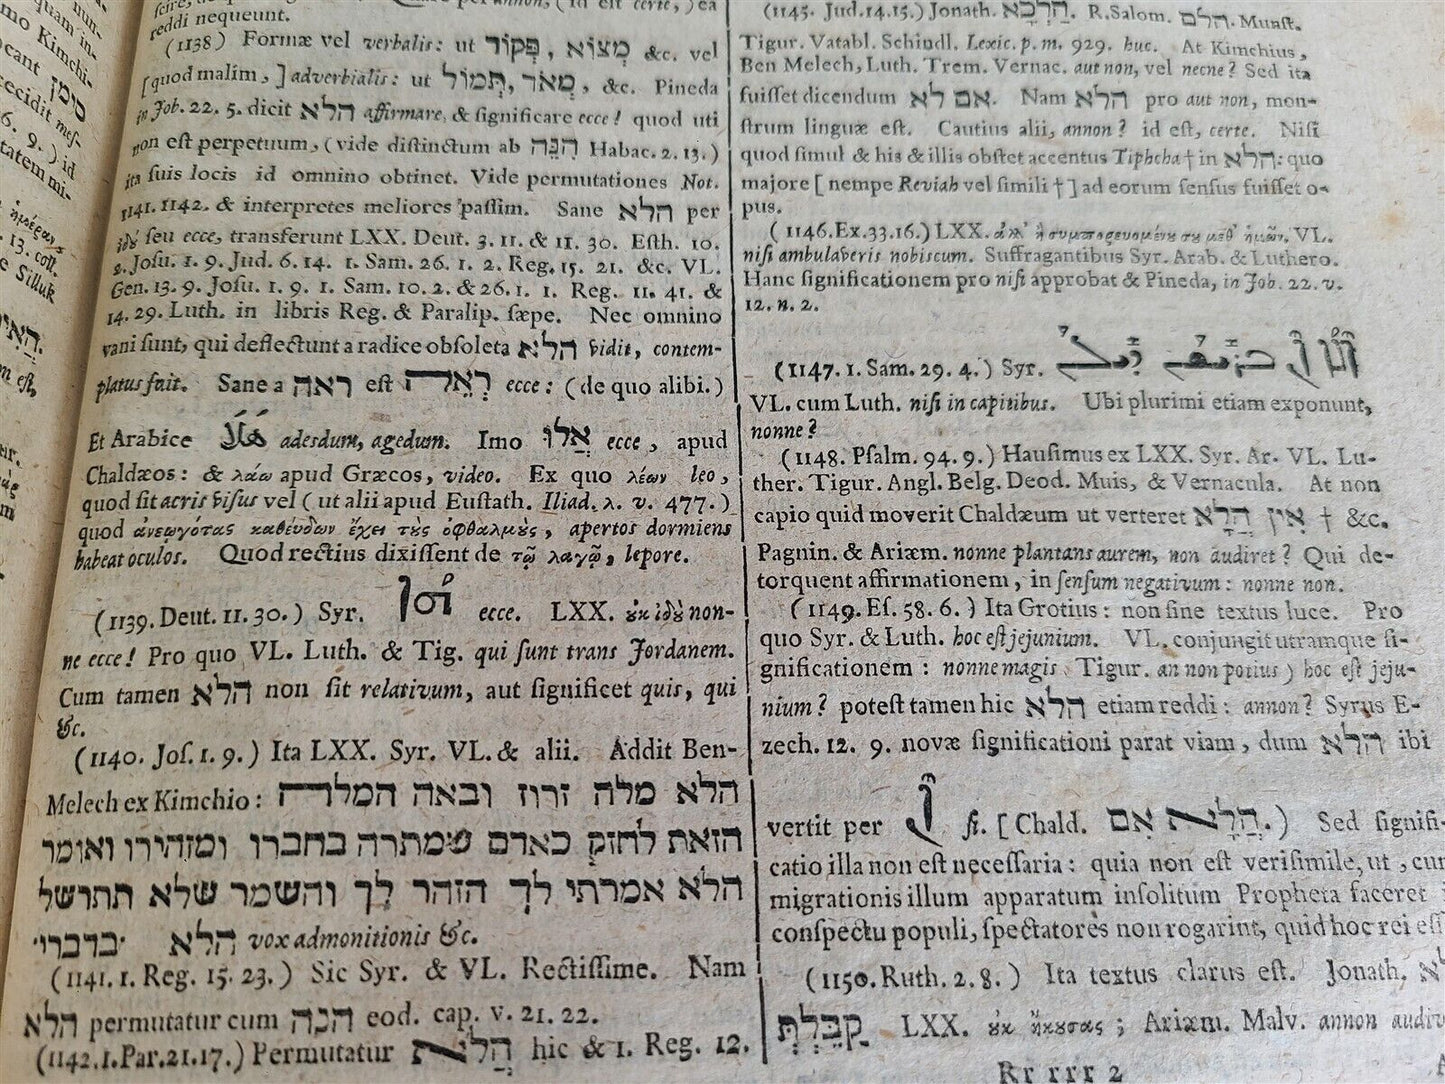 mo Kimchi-
ocant סימן
recidit mes-
6. 9.) id
tatem mi-
ἡμέραν
. 13. coll.
e Silluk
reddi nequeunt.
(1138) Formæ vel verbalis: ut מְצוֹא , פְּקוֹד &c. vel
[quod malim,] adverbialis: ut מְאֹד , תְּמוֹל , &c. Pineda
in Job. 22. 5. dicit הלא affirmare, & significare ecce! quod uti
non est perpetuum, (vide distinctum ab הִנֵּה Habac. 2. 13.)
ita suis locis id omnino obtinet. Vide permutationes Not.
1141. 1142. & interpretes meliores passim. Sane הלא per
ἰδοὺ seu ecce, transferunt LXX. Deut. 3. 11. & 11. 30. Esth. 10.
2. Josu. 1. 9. Jud. 6. 14. 1. Sam. 26. 1. 2. Reg. 15. 21. &c. VL.
Gen. 13. 9. Josu. 1. 9. 1. Sam. 10. 2. & 26. 1. 1. Reg. 11. 41. &
14. 29. Luth. in libris Reg. & Paralip. sæpe. Nec omnino
vani sunt, qui deflectunt a radice obsoleta הלא vidit, contem-
platus fuit. Sane a ראה est רְאֵה ecce: (de quo alibi.)
Et Arabice هَلَا adesdum, agedum. Imo אֲלוּ ecce, apud
Chaldæos: & λάω apud Græcos, video. Ex quo λέων leo,
quod sit acris visus vel (ut alii apud Eustath. Iliad. λ. v. 477.)
quod ἀνεῳγότας καθεύδων ἔχει τοὺς ὀφθαλμοὺς, apertos dormiens
habeat oculos. Quod rectius dixissent de τῷ λαγῷ, lepore.
(1139. Deut. 11. 30.) Syr. ecce. LXX. οὐκ ἰδοὺ non-
ne ecce! Pro quo VL. Luth. & Tig. qui sunt trans Jordanem.
Cum tamen הלא non sit relativum, aut significet quis, qui
&c.
(1140. Jos. 1. 9.) Ita LXX. Syr. VL. & alii. Addit Ben-
Melech ex Kimchio: הלא מלה זרוז ובאה המלה
הזאת לחזק כאדם שמתרה בחברו ומזהירו ואומר
הלא אמרתי לך הזהר לך והשמר שלא תתרשל
בדברו· הלא vox admonitionis &c.
(1141. 1. Reg. 15. 23.) Sic Syr. & VL. Rectissime. Nam
הלא permutatur cum הנה eod. cap. v. 21. 22.
(1142. 1. Par. 21. 17.) Permutatur הֲלֹא hic & 1. Reg. 12.
(1145. Jud. 14. 15.) Jonath. הַלְכָא. R. Salom. הלם. Munst.
Tigur. Vatabl. Schindl. Lexic. p. m. 929. huc. At Kimchius,
Ben Melech, Luth. Trem. Vernac. aut non, vel necne? Sed ita
fuisset dicendum אם לא. Nam הלא pro aut non, mon-
strum linguæ est. Cautius alii, annon? id est, certe. Nisi
quod simul & his & illis obstet accentus Tiphcha † in הלא: quo
majore [nempe Reviah vel simili †] ad eorum sensus fuisset o-
pus.
(1146. Ex. 33. 16.) LXX. ἀλλ' ἢ συμπορευομένου σου μεθ' ἡμῶν. VL.
nisi ambulaveris nobiscum. Suffragantibus Syr. Arab. & Luthero.
Hanc significationem pro nisi approbat & Pineda, in Job. 22. v.
12. n. 2.
(1147. 1. Sam. 29. 4.) Syr.
VL. cum Luth. nisi in capitibus. Ubi plurimi etiam exponunt,
nonne?
(1148. Psalm. 94. 9.) Hausimus ex LXX. Syr. Ar. VL. Lu-
ther. Tigur. Angl. Belg. Deod. Muis, & Vernacula. At non
capio quid moverit Chaldæum ut verteret אין הלא † &c.
Pagnin. & Ariæm. nonne plantans aurem, non audiret? Qui de-
torquent affirmationem, in sensum negativum: nonne non.
(1149. Es. 58. 6.) Ita Grotius: non sine textus luce. Pro
quo Syr. & Luth. hoc est jejunium. VL. conjungit utramque si-
gnificationem: nonne magis Tigur. an non potius) hoc est jeju-
nium? potest tamen hic הלא etiam reddi: annon? Syrus E-
zech. 12. 9. novæ significationi parat viam, dum הלא ibi
vertit per si. [Chald. הֲלָא אִם.) Sed signifi-
catio illa non est necessaria: quia non est verisimile, ut, cum
migrationis illum apparatum insolitum Propheta faceret
conspectu populi, spectatores non rogarint, quid hoc rei ess
(1150. Ruth. 2. 8.) Ita textus clarus est. Jonath.
קַבֵּלְתְּ LXX. οὐκ ἤκουσας; Ariæm. Malv. annon audiv
Rr rrr 2